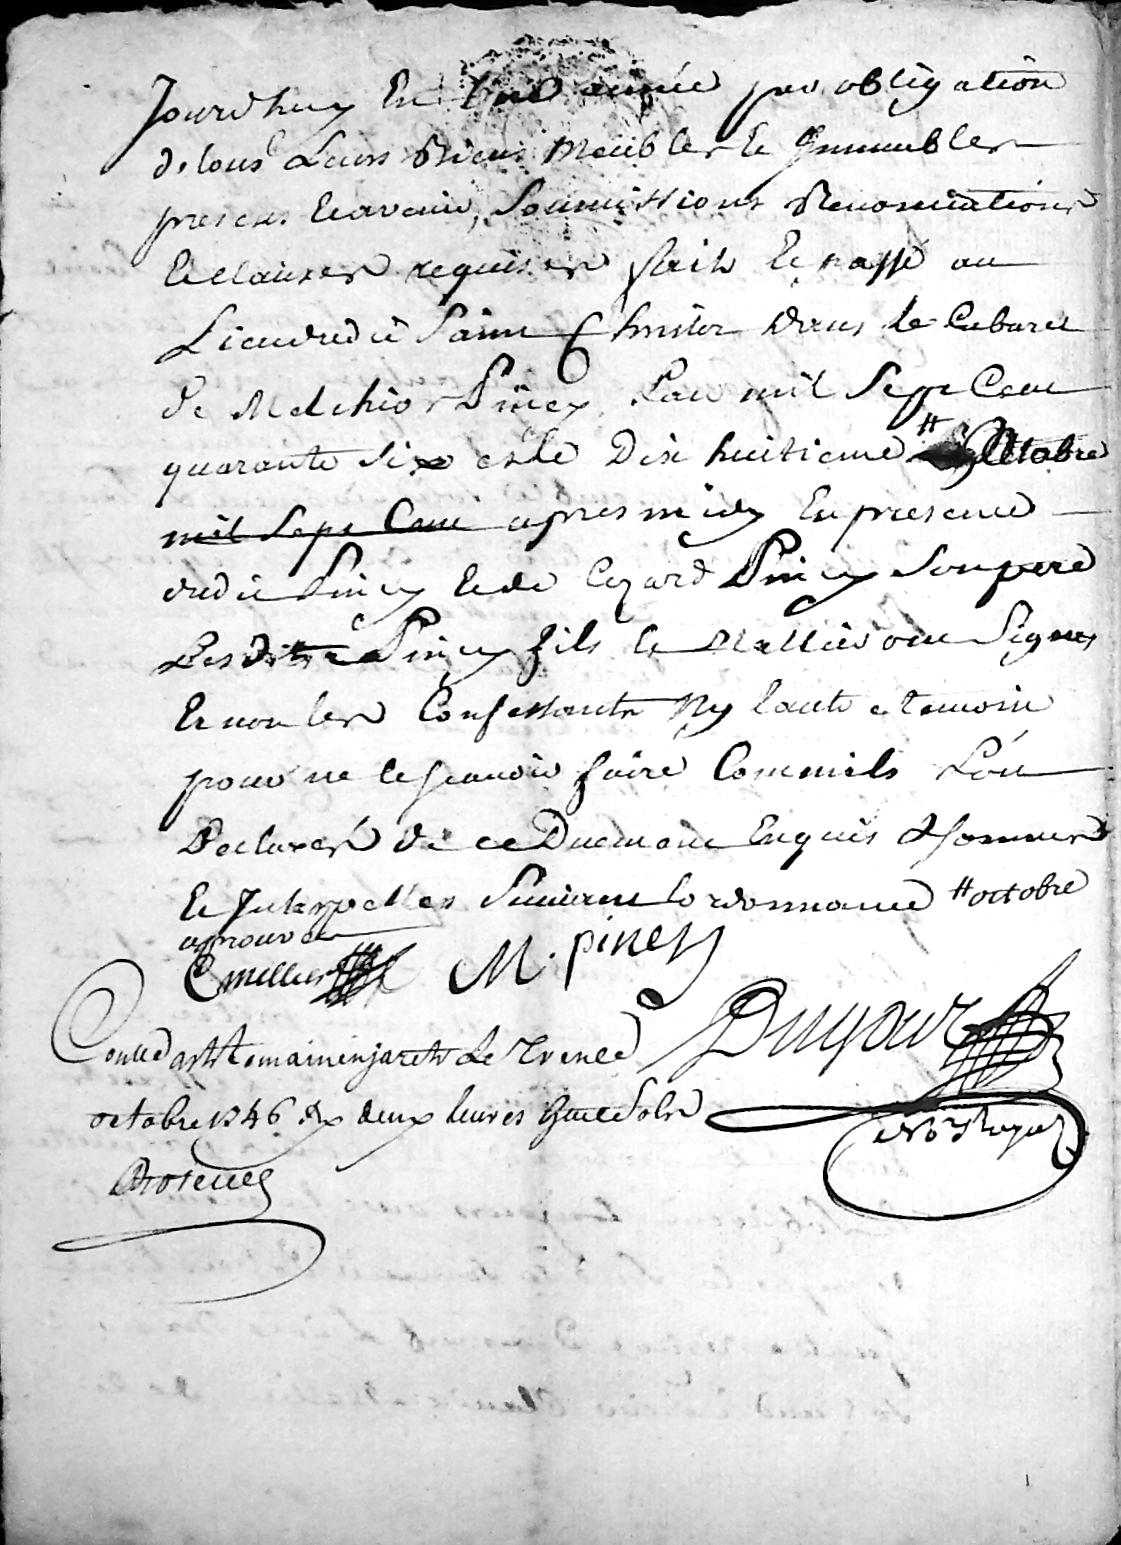 Jourdhuy En une année par obligation
de tous Leurs Biens Meubles Et Immeubles
presens Eta venir, Soumissions Renonciations
Et clauses requises fait Et passé au
Lieududit Saint Christo dans le Cabaret
de Melchior Piney Lan mil Sept Cent
quarante Six et le Dix huitieme # Octobre
mil Sept Cent apres midy En presence
dudit Piney Et de Cezard Piney Son pere
Lesdits Piney fils et Mellier ont Signes
Et non les Confessants Ny Lautre temoin
pour ne le scavoir faire Comme ils Lon
Declarés de ce Duement Enquis & Sommes
Et Interpelles Suivant Lordonnance # octobre
aprouvé
C mellier M. piney
Dugour
Con le d a St Romain en jarets Le Trente
octobre 1746 deux livres huit Sols
No Royal